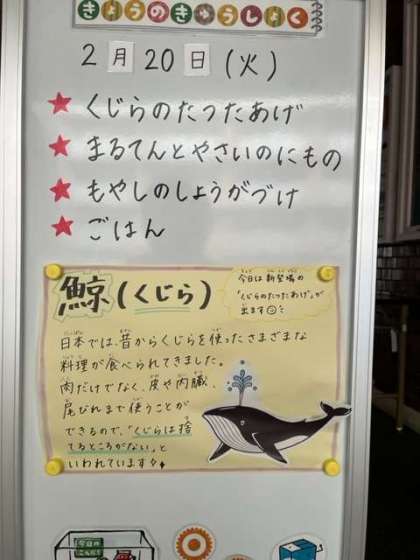 きょうのきゅうしょく
2月20日(火)
★くじらのたつたあげ
★まるてんとやさいのにもの
★もやしのしょうがづけ
★ごはん
鯨(くじら)
今日は新登場の
「くじらのたつたあげ」が
出ます
日本では、昔からくじらを使ったさまざまな
料理が食べられてきました。
肉だけでなく、皮や内臓、
尾びれまで使うことが
できるので、「くじらは捨
てるところがない」と
いわれています